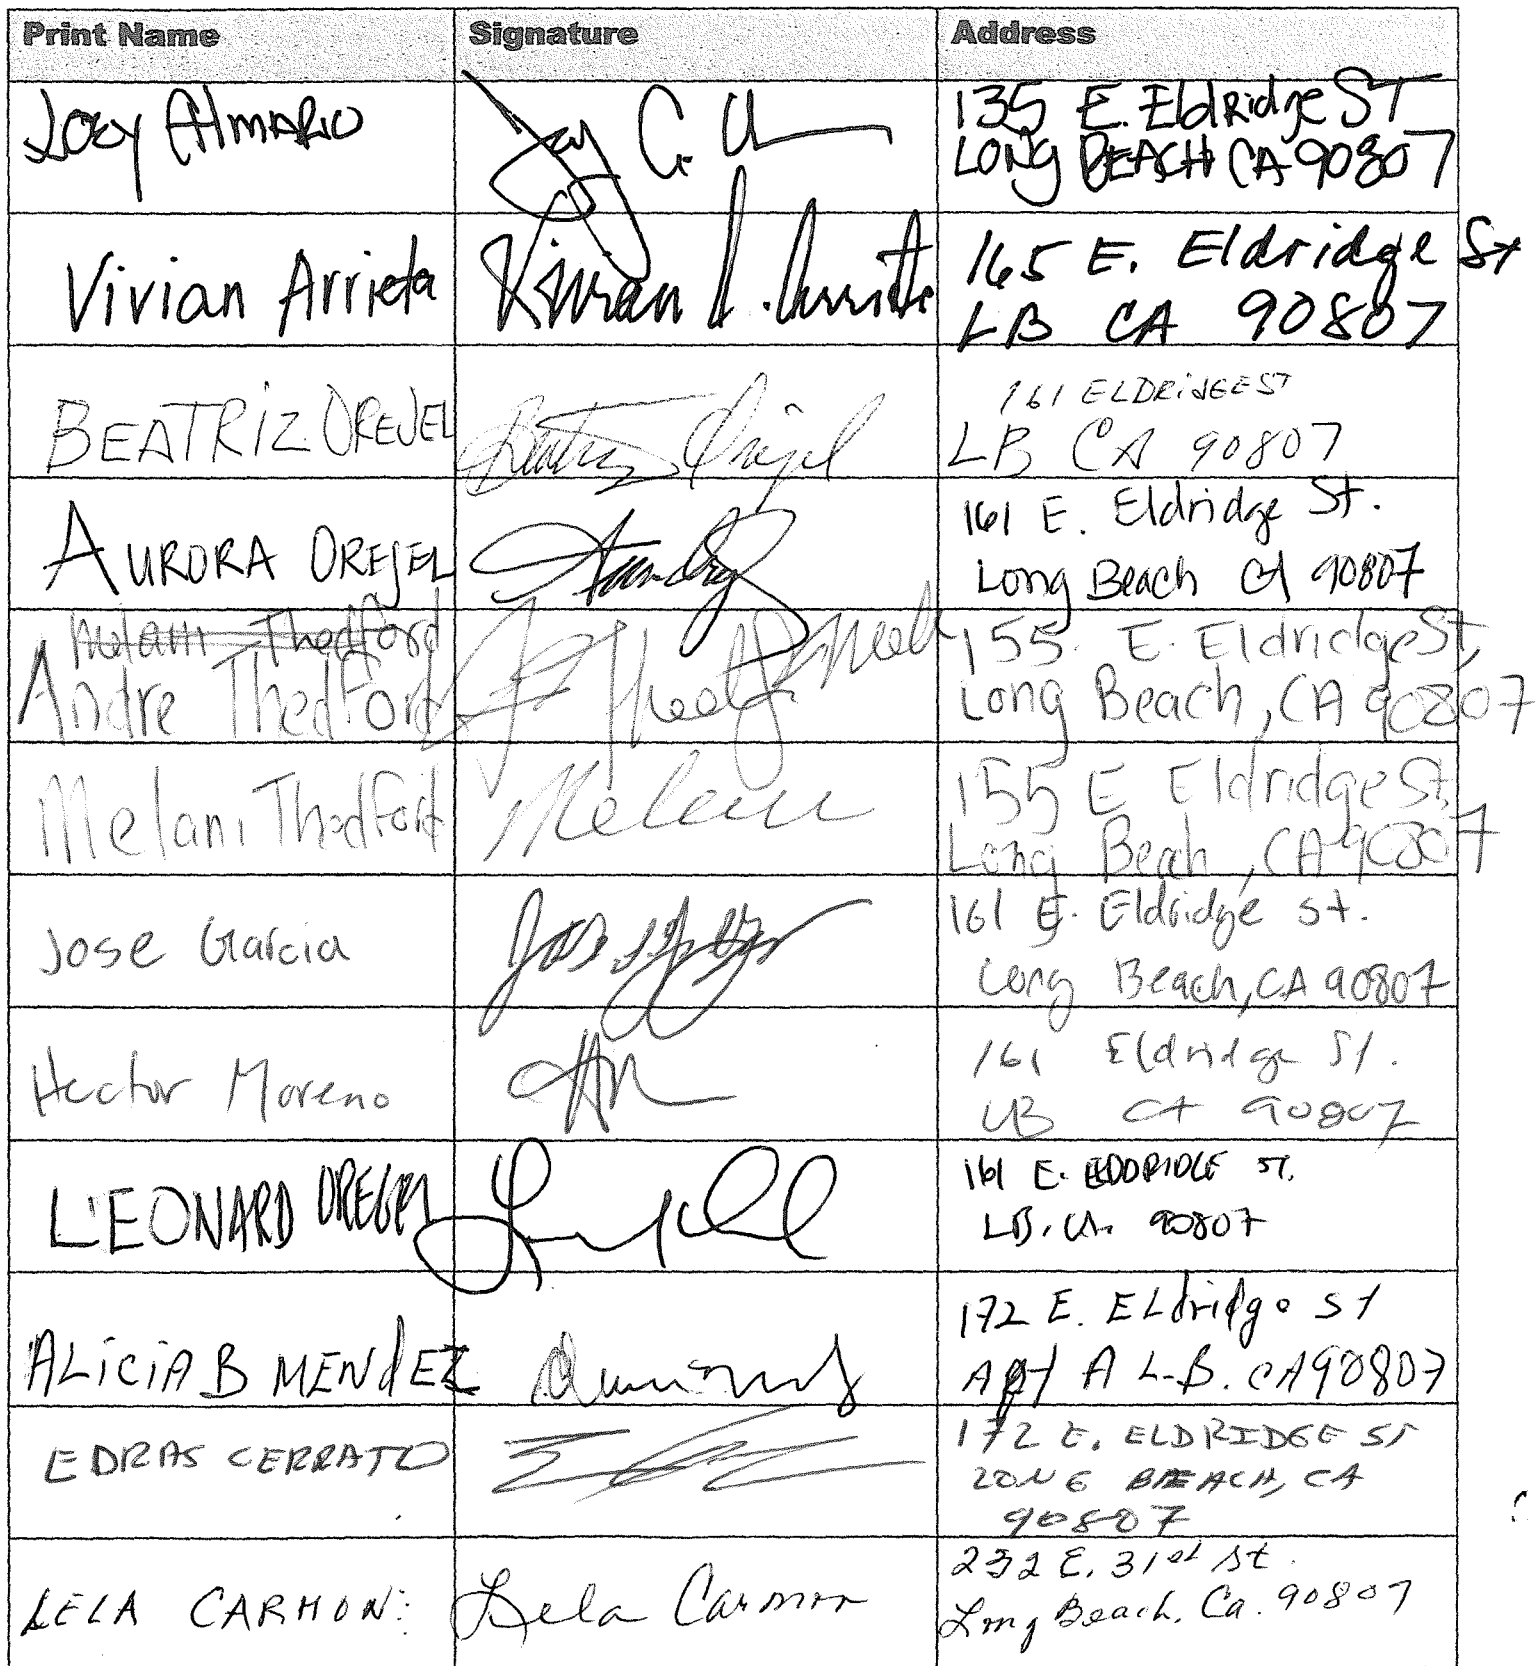 Print Name Signature Address
Joey Almario 135 E. Eldridge ST
LONg BEACH CA 90807
Vivian Arrieta Vivian Arrieta 165 E. Eldridge St
LB CA 90807
BEATRIZ OREJEL Beatriz Orejel 161 ELDRiDGE ST
LB CA 90807
AURORA OREJEL 161 E. Eldridge St.
Long Beach CA 90807
Melani Thedford
Andre Thedford 155 E. Eldridge St,
Long Beach, CA 90807
Melani Thedford Melani 155 E Eldridge St,
Long Beach, CA 90807
Jose Garcia 161 E. Eldridge st.
Long Beach, CA 90807
Hector Moreno 161 Eldridge St.
LB CA 90807
LEONARD OREGEL 161 E. ST.
LB. CA. 90807
ALiCiA B MENdEZ 172 E. ELdridge st
Apt A L.B. CA 90807
EDRAS CERRATO 172 E. ELDRIDGE ST
LONG BEACH, CA
90807
LELA CARMON: Lela Carmon 232 E. 31st St.
Long Beach, Ca. 90807